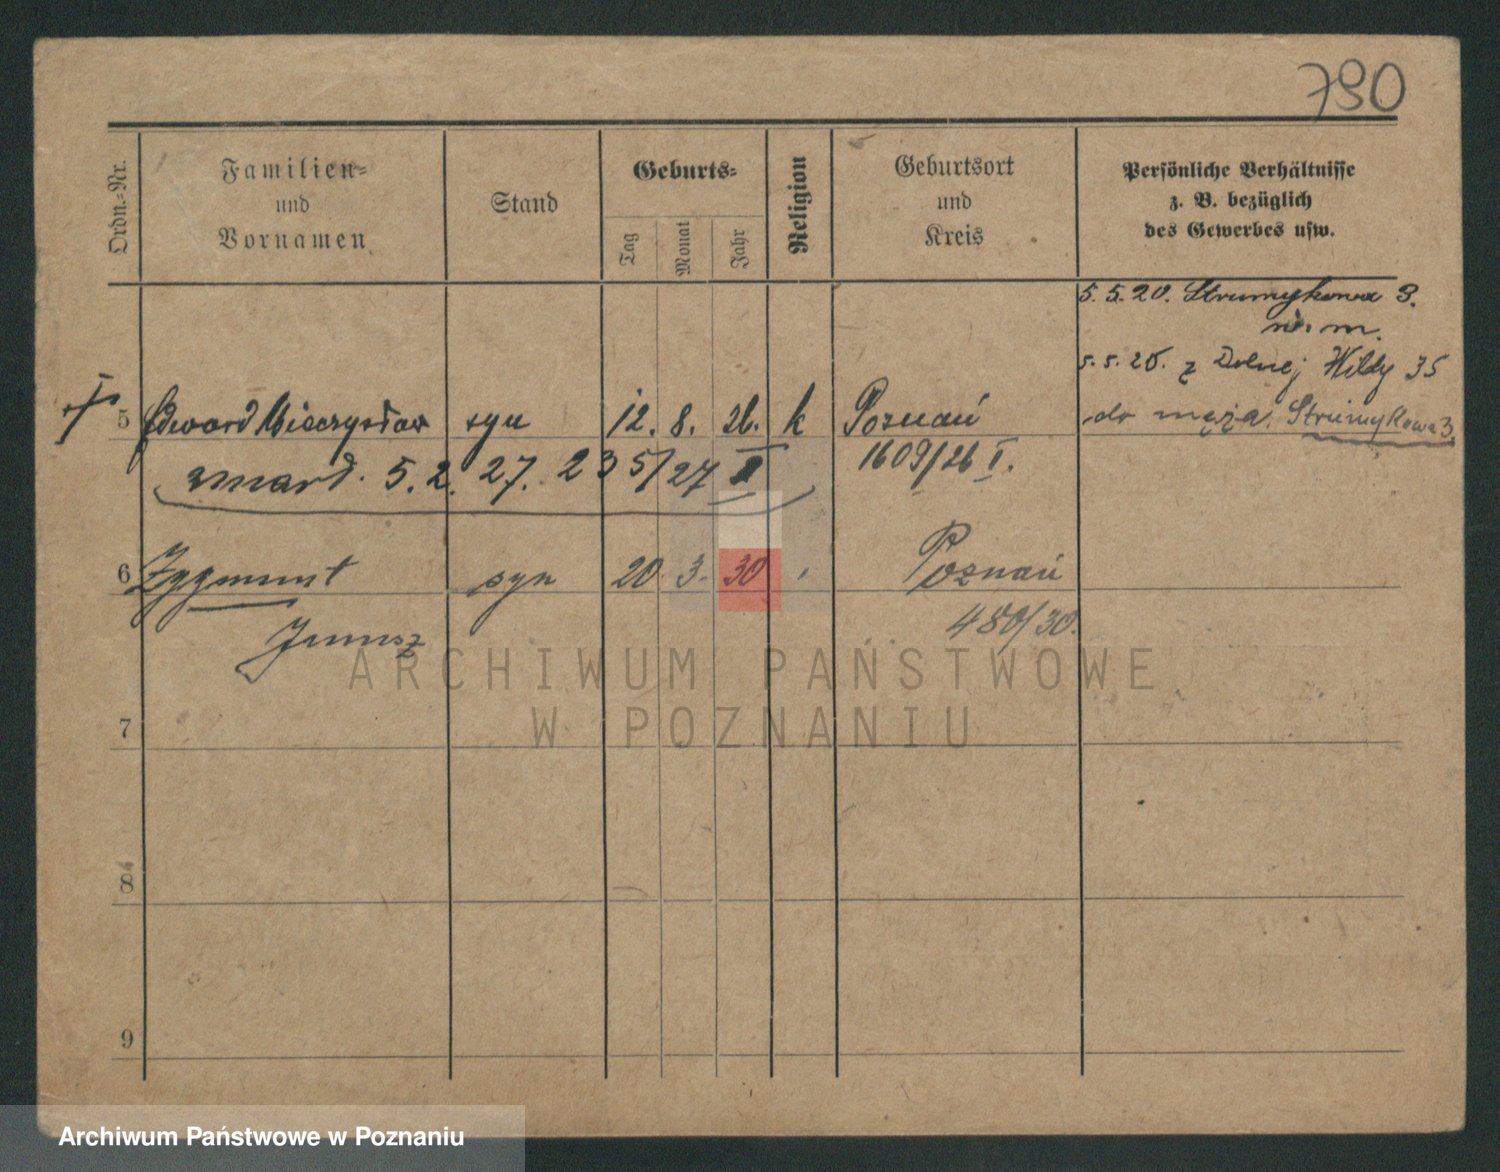 790
Ordn.=Nr.
Familien=
und
Vornamen
Stand
Geburts=
Tag
Monat
Jahr
Religion
Geburtsort
und
Kreis
Persönliche Verhältnisse
z. B. bezüglich
des Gewerbes usw.
5.5.20. Strumykowa 3.
m.
5.5.20. z Dolnej Wildy 35
do męża. Strumykowa 3.
5 Edward Mieczysław syn 12. 8. 26. k Poznań
1609/26 I.
zmarł. 5.2. 27. 235/27 I
6 Zygmunt syn 20 3. 30 Poznań
Janusz
480/30.
7
8
9
ARCHIWUM PAŃSTWOWE
W POZNANIU
Archiwum Państwowe w Poznaniu